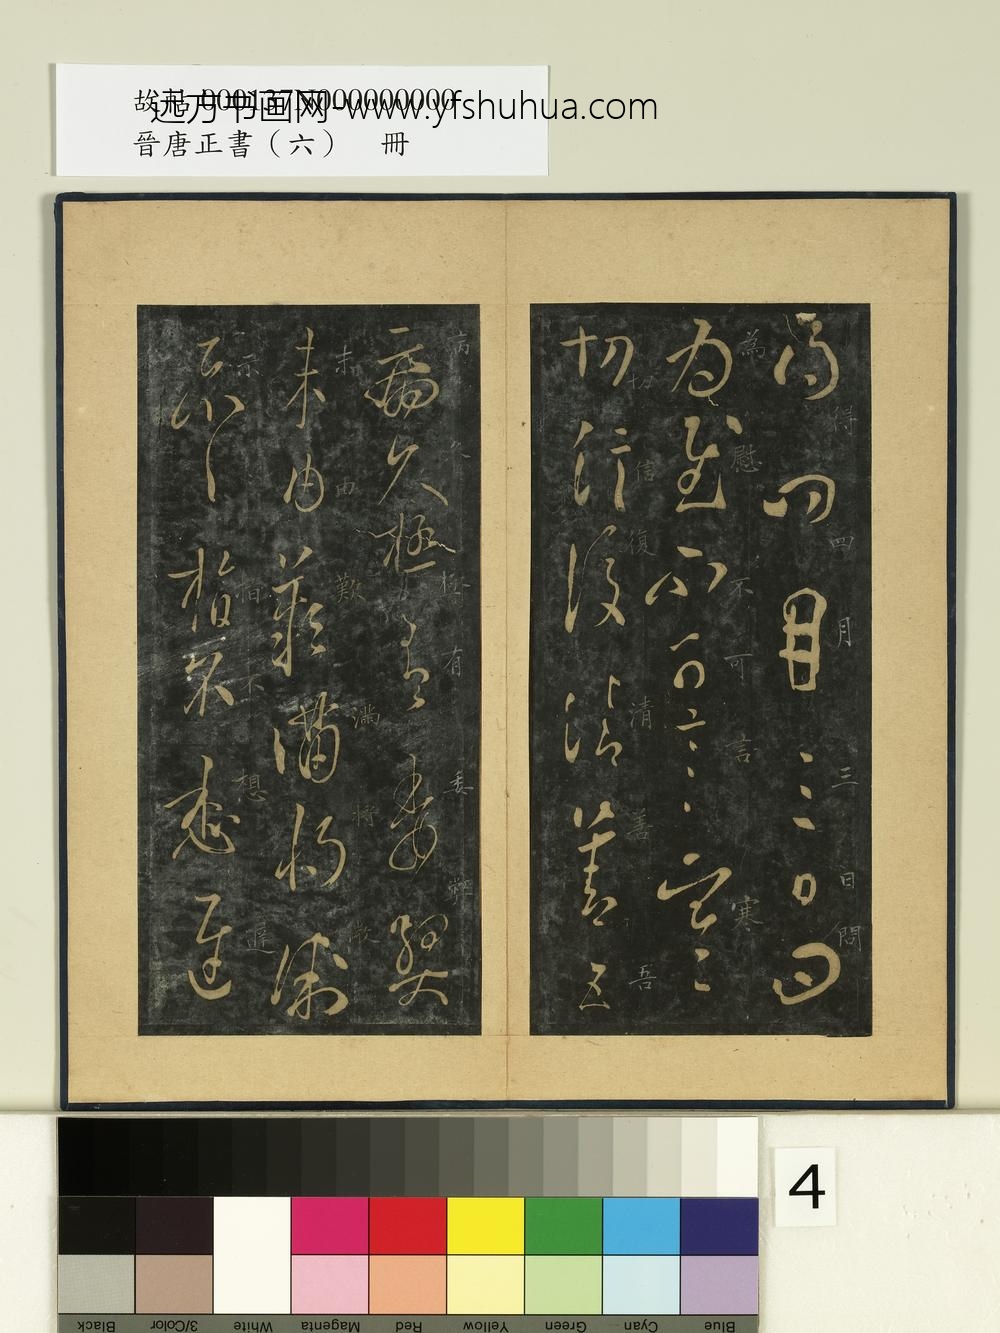 故帖 000137N000000000
远方书画网-www.yfshuhua.com
晉唐正書（六） 冊
得四月三日問
為慰不可言寒
切信復清善吾
病久極有委弊
未由艱滿將散
示一指不想遲
4
Black
3/Color
White
Magenta
Red
Yellow
Green
Cyan
Blue